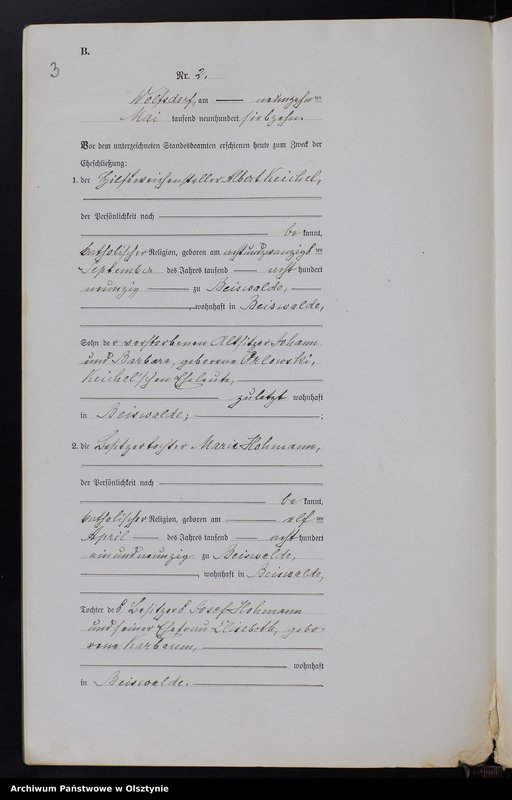 B.
3
Nr. 2.
Wolfsdorf, am — neunzehnten
Mai tausend neunhundert siebzehn.
Vor dem unterzeichneten Standesbeamten erschienen heute zum Zweck der
Eheschließung:
1. der Hilfsweichensteller Albert Keichel,
der Persönlichkeit nach
bekannt,
katholischer Religion, geboren am achtundzwanzigsten
September des Jahres tausend — acht hundert
neunzig — zu Beiswalde,
, wohnhaft in Beiswalde,
Sohn der verstorbenen Altsitzer Johann
und Barbara, geborene Orlowski,
Keichel'schen Eheleute,
zuletzt wohnhaft
in Beiswalde; ;
2. die Besitzertochter Maria Hohmann,
der Persönlichkeit nach
bekannt,
katholischer Religion, geboren am — elften
April — des Jahres tausend — acht hundert
einundneunzig zu Beiswalde,
, wohnhaft in Beiswalde,
Tochter des Besitzers Josef Hohmann
und seiner Ehefrau Elisabeth, gebo-
rene Karbaum,
wohnhaft
in Beiswalde.
Archiwum Państwowe w Olsztynie